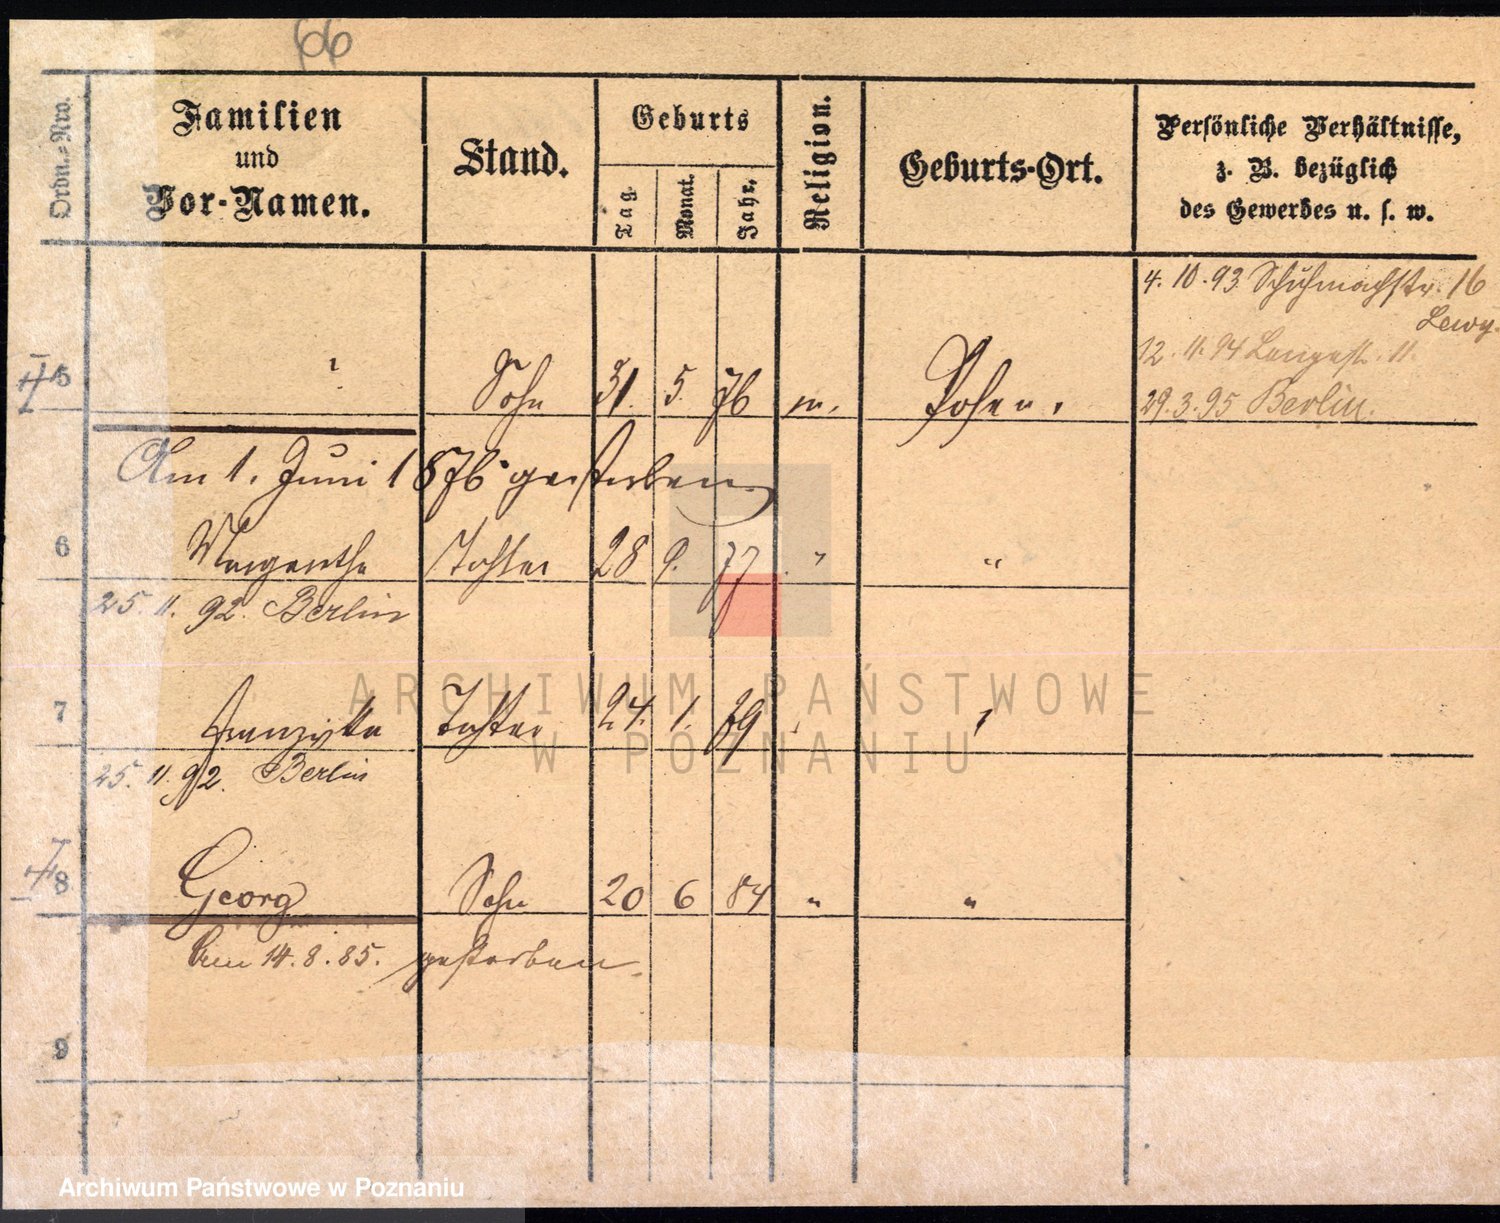 66
Ordn.-Nro.
Familien und Vor-Namen.
Stand.
Geburts
Tag.
Monat.
Jahr.
Religion.
Geburts-Ort.
Persönliche Verhältnisse, z. B. bezüglich des Gewerbes u. s. w.
4. 10. 93 Schuhmachstr. 16
Lewy
12. 11. 94 Langestr. 11.
29. 3. 95 Berlin.
5 Sohn 31. 5. 76 m. Posen.
Am 1. Juni 1876 gestorben
6 Margarethe Tochter 28 9. 77 " "
25. 11. 92. Berlin
7 Tochter 24. 1. 79
25. 11. 92. Berlin
8 Georg Sohn 20 6 84 " "
Am 14. 8. 85. gestorben.
9
ARCHIWUM PAŃSTWOWE
W POZNANIU
Archiwum Państwowe w Poznaniu